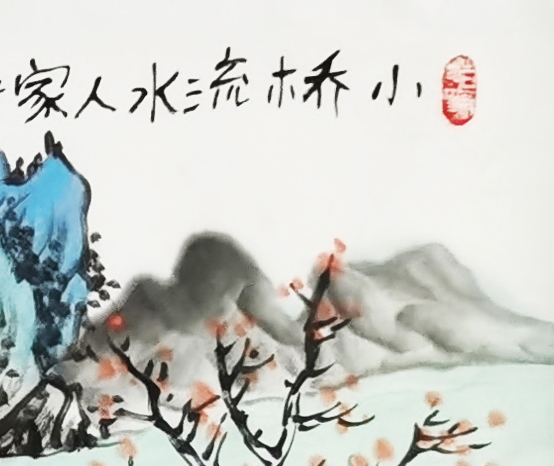 小桥流水人家